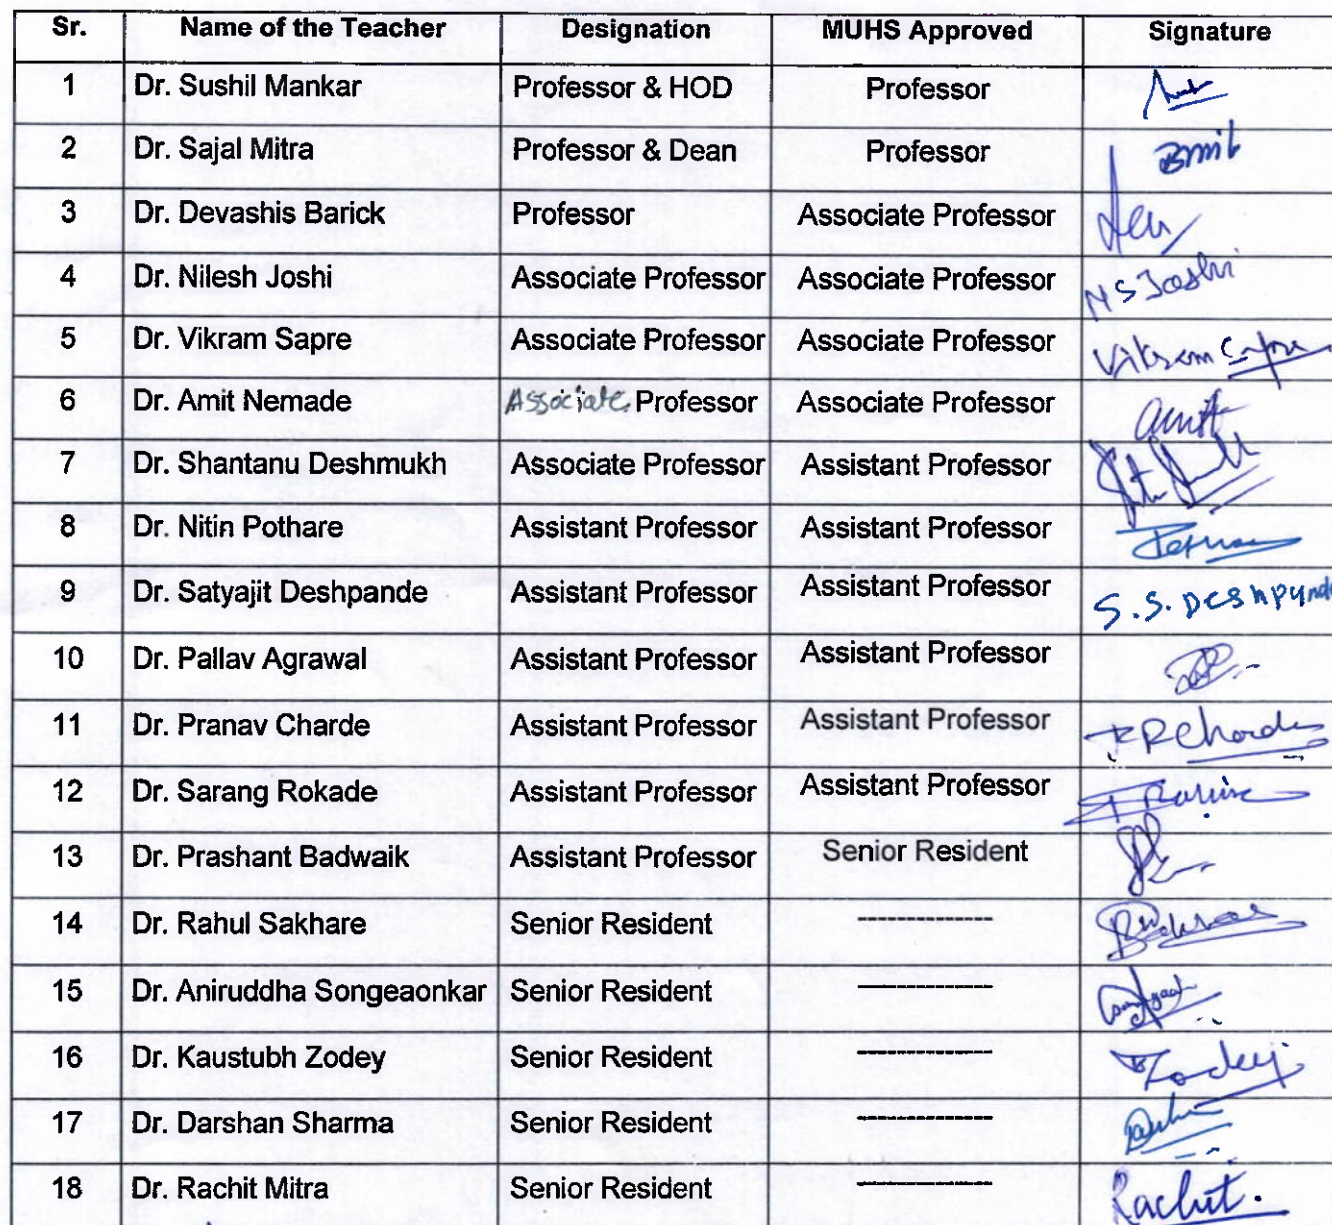 Sr. Name of the Teacher Designation MUHS Approved Signature
1 Dr. Sushil Mankar Professor & HOD Professor
2 Dr. Sajal Mitra Professor & Dean Professor
3 Dr. Devashis Barick Professor Associate Professor
4 Dr. Nilesh Joshi Associate Professor Associate Professor NSJoshi
5 Dr. Vikram Sapre Associate Professor Associate Professor Vikram Sapre
6 Dr. Amit Nemade Associate Professor Associate Professor Amit
7 Dr. Shantanu Deshmukh Associate Professor Assistant Professor
8 Dr. Nitin Pothare Assistant Professor Assistant Professor
9 Dr. Satyajit Deshpande Assistant Professor Assistant Professor S.S. Deshpande
10 Dr. Pallav Agrawal Assistant Professor Assistant Professor
11 Dr. Pranav Charde Assistant Professor Assistant Professor
12 Dr. Sarang Rokade Assistant Professor Assistant Professor
13 Dr. Prashant Badwaik Assistant Professor Senior Resident
14 Dr. Rahul Sakhare Senior Resident ------------
15 Dr. Aniruddha Songeaonkar Senior Resident ------------
16 Dr. Kaustubh Zodey Senior Resident ------------ Zodey
17 Dr. Darshan Sharma Senior Resident ------------
18 Dr. Rachit Mitra Senior Resident ------------ Rachit.